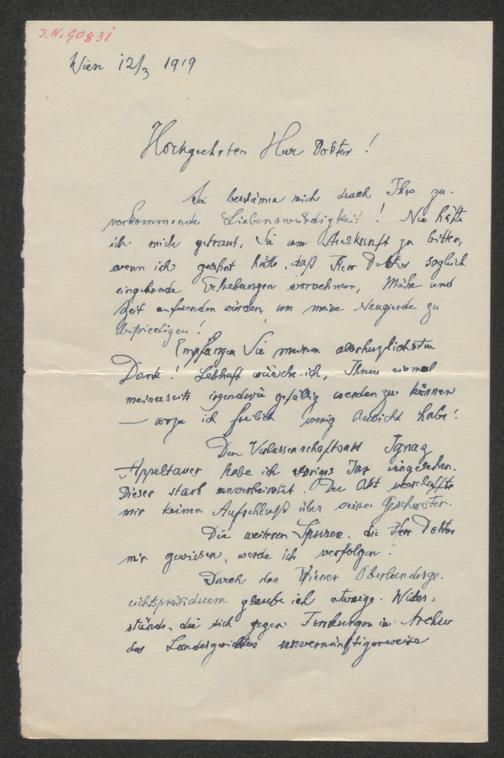 J.N. 90831
Wien 12/3 1919
Hochgeehrter Herr Doktor!
Sie beschämen mich durch Ihre zu-
vorkommende Liebenswürdigkeit! Nie hätte
ich mich getraut, Sie um Auskunft zu bitten,
wenn ich geahnt hätte, daß Herr Doktor sogleich
eingehende Erhebungen vornehmen, Mühe und
Zeit aufwenden würden, um meine Neugierde zu
befriedigen!
Empfangen Sie meinen allerherzlichsten
Dank! Lebhaft wünsche ich, Ihnen einmal
meinerseits irgendwie gefällig werden zu können
— wozu ich freilich wenig Aussicht habe!
Den Verlassenschaftsakt Ignaz
Appeltauer habe ich voriges Jar eingesehen.
Dieser starb unverheiratet. Der Akt verschaffte
mir keinen Aufschluß über seine Geschwister.
Die weiteren Spuren, die Herr Doktor
mir gewiesen, werde ich verfolgen!
Durch das Wiener Oberlandesge-
richtspräsidium glaube ich etwaige Wider-
stände, die sich gegen Forschungen im Archiv
des Landesgerichtes unvernünftigerweise